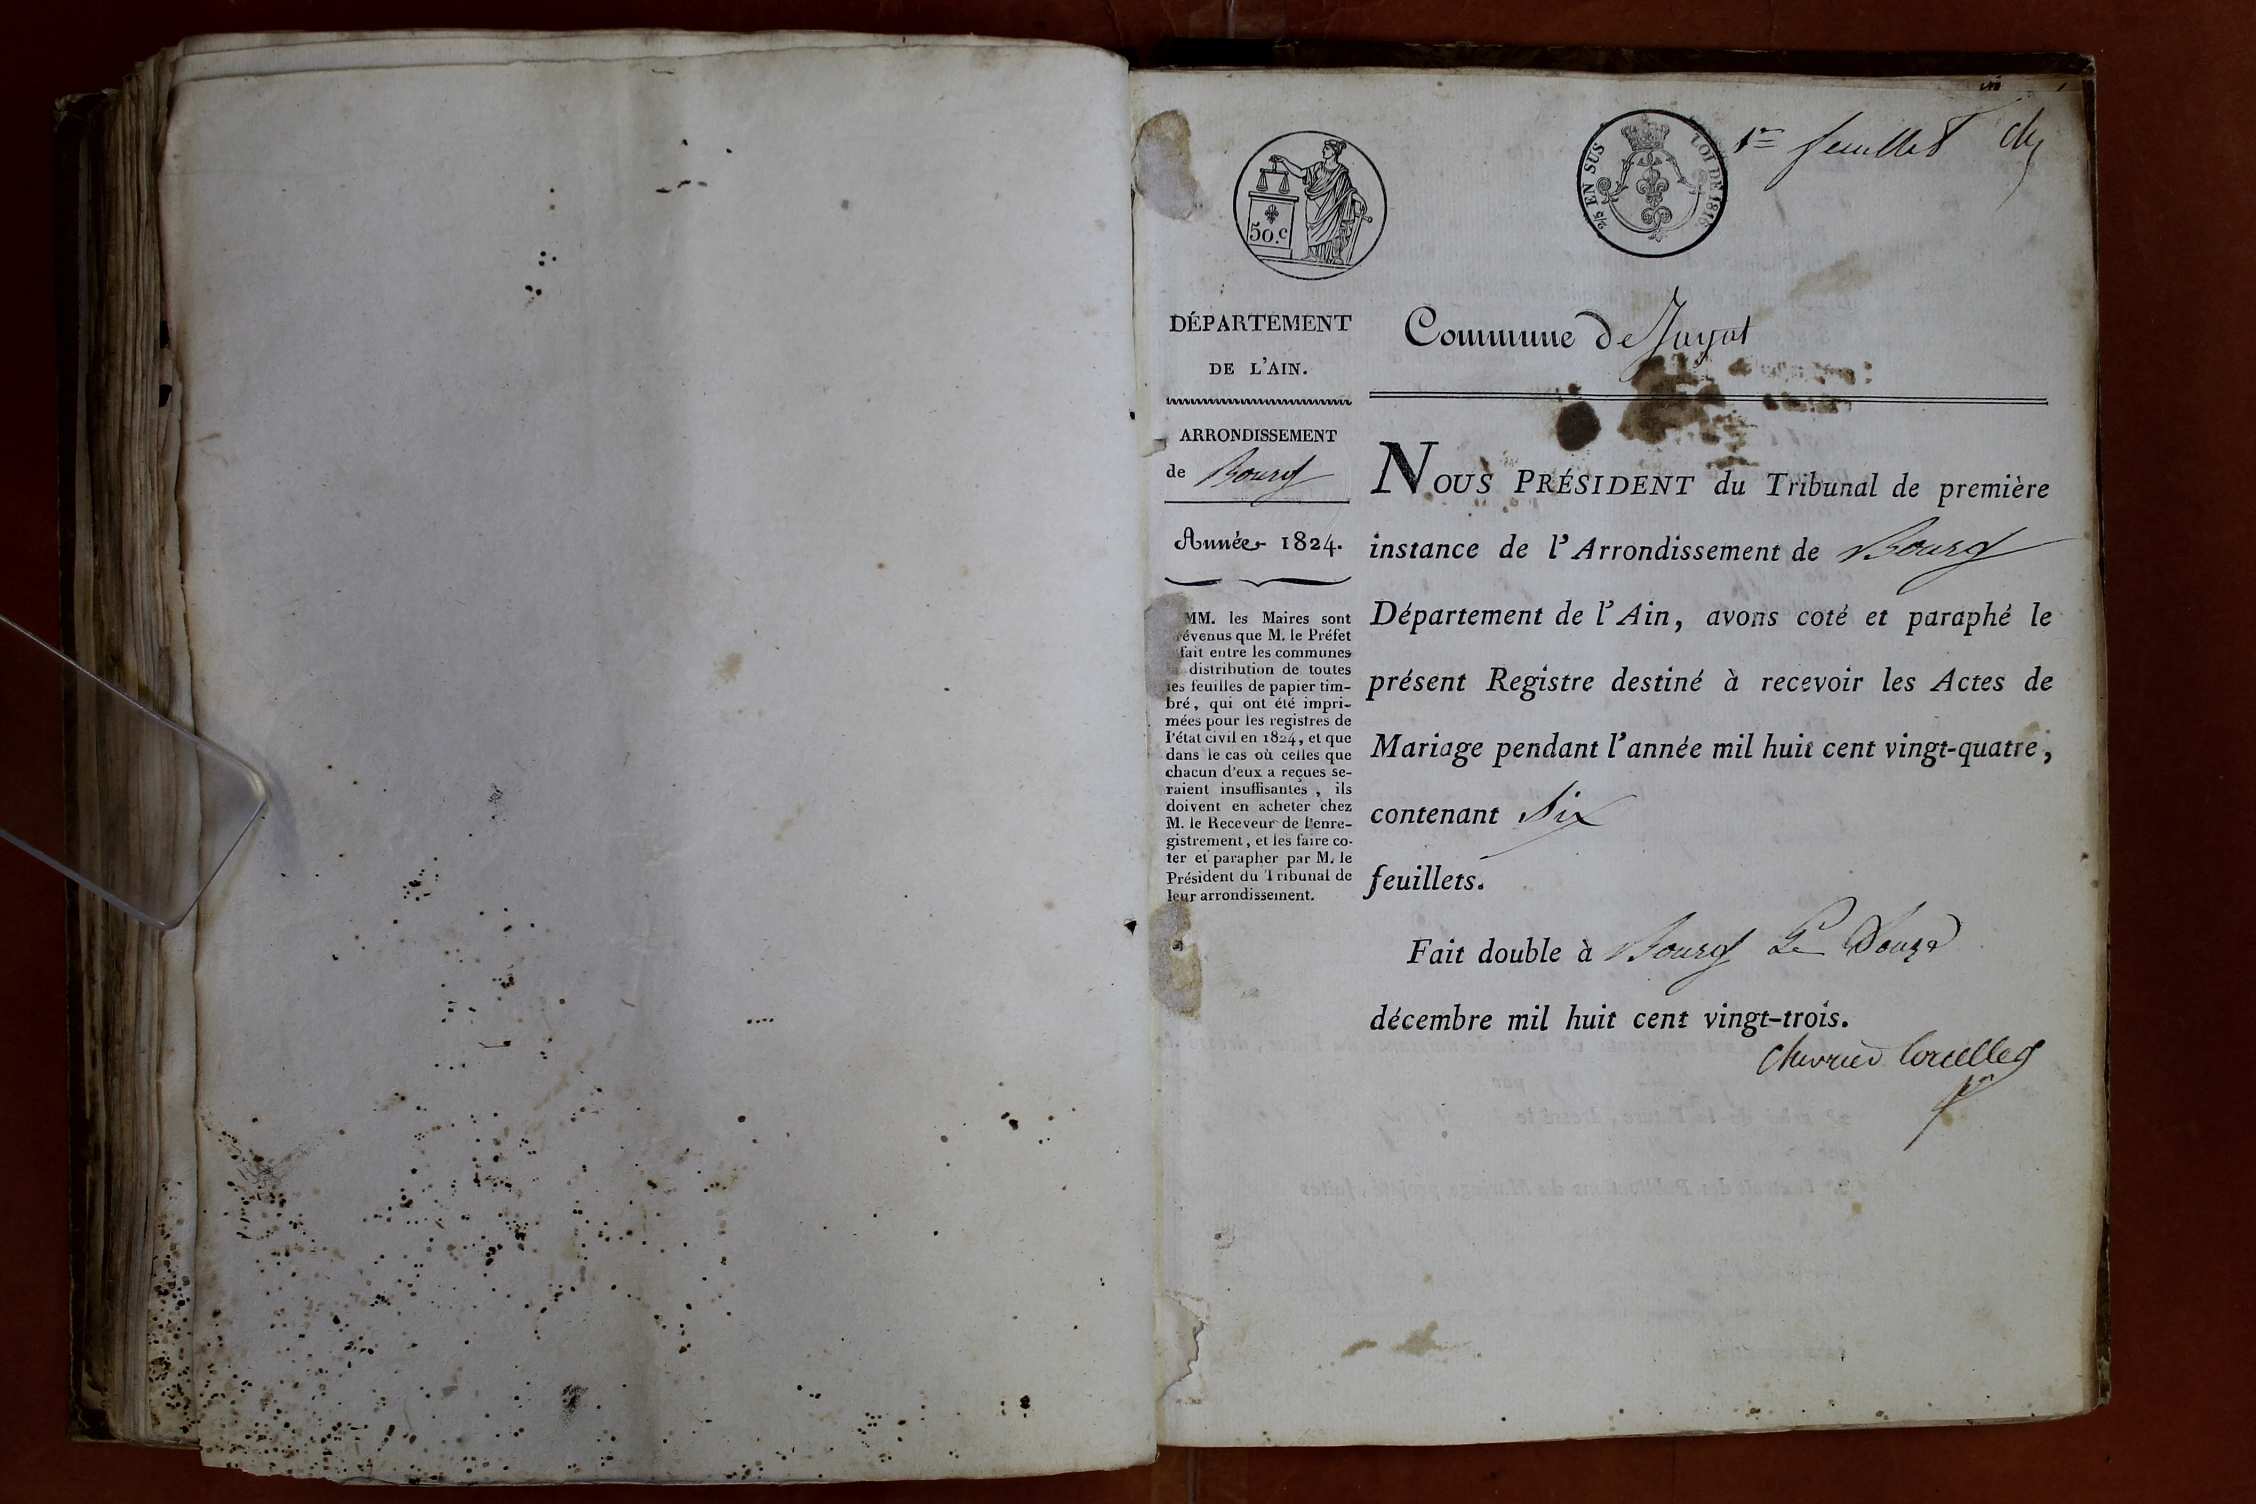 1er feuillet
50.c
2/5 EN SUS LOI DE 1816.
DÉPARTEMENT
DE L'AIN.
ARRONDISSEMENT
de Bourg
Année 1824.
MM. les Maires sont
prévenus que M. le Préfet
fait entre les communes
la distribution de toutes
les feuilles de papier tim-
bré, qui ont été impri-
mées pour les registres de
l'état civil en 1824, et que
dans le cas où celles que
chacun d'eux a reçues se-
raient insuffisantes, ils
doivent en acheter chez
M. le Receveur de l'enre-
gistrement, et les faire co-
ter et parapher par M. le
Président du Tribunal de
leur arrondissement.
Commune de Jayat
NOUS PRÉSIDENT du Tribunal de première
instance de l'Arrondissement de Bourg
Département de l'Ain, avons coté et paraphé le
présent Registre destiné à recevoir les Actes de
Mariage pendant l'année mil huit cent vingt-quatre,
contenant Six
feuillets.
Fait double à Bourg Le Douze
décembre mil huit cent vingt-trois.
Chevrier Corcelles